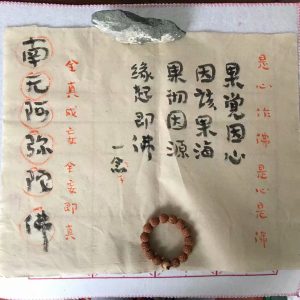 是心作佛 是心是佛
果覺因心
因该果海
果彻因源
缘起即佛
一念
全真成妄 全妄即真
南无阿弥陀佛